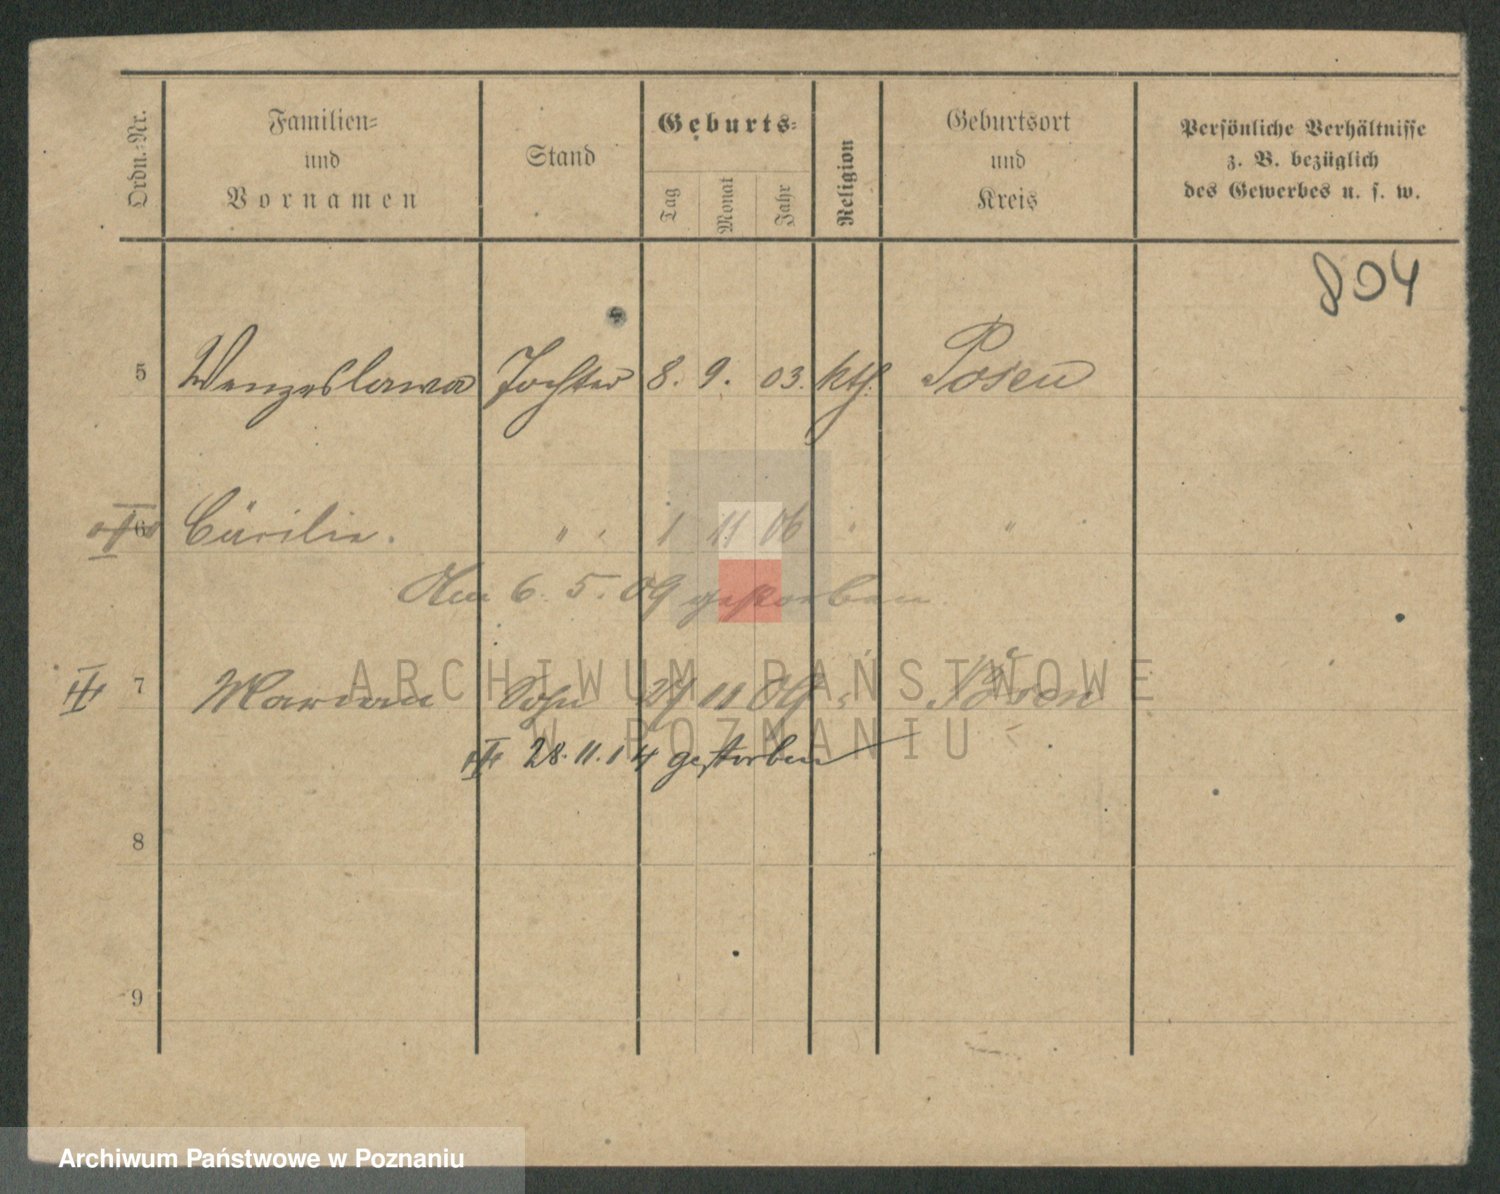 Ordn.-Nr.
Familien-
und
Vornamen
Stand
Geburts-
Tag
Monat
Jahr
Religion
Geburtsort
und
Kreis
Persönliche Verhältnisse
z. B. bezüglich
des Gewerbes u. s. w.
804
5 Wenzeslawa Tochter 8. 9. 03. kth. Posen
6 Cäcilie. " " 1 11 06 " "
Am 6. 5. 09 gestorben
7 Marian Sohn 11 09 " Posen
28.11.14 gestorben
8
9
ARCHIWUM PAŃSTWOWE
W POZNANIU
Archiwum Państwowe w Poznaniu